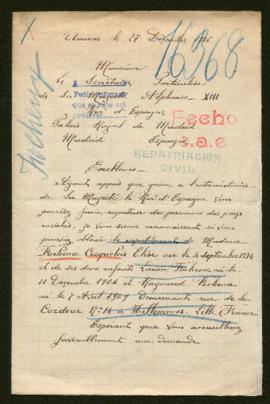 Amiens le 27 Décembre
16968
Monsieur
Le Secrétaire Particulier
de Sa Alphonse XIII
Roi d'Espagne
Palais Royal de Madrid
Madrid Espagne
Hecho
s.a.e
REPATRIACIÓN
CIVIL
Excellence
Ayant appris que grâce à
Sa Majesté le Roi d'Espagne vous
pouviez faire rapatrier des personnes des pays
envahis, je vous serais reconnaissant de
obtenir le rapatriement de Madame
Élise née le 4 septembre 1874
et de ses deux enfants Lucien né le
11 Décembre 1906 et Raymond
né le 7 Avril 1909 Demeurant rue de la
Corderie Nº 14 à Hellemmes. Lille, France
Espérant que vous accueillerez
favorablement ma demande